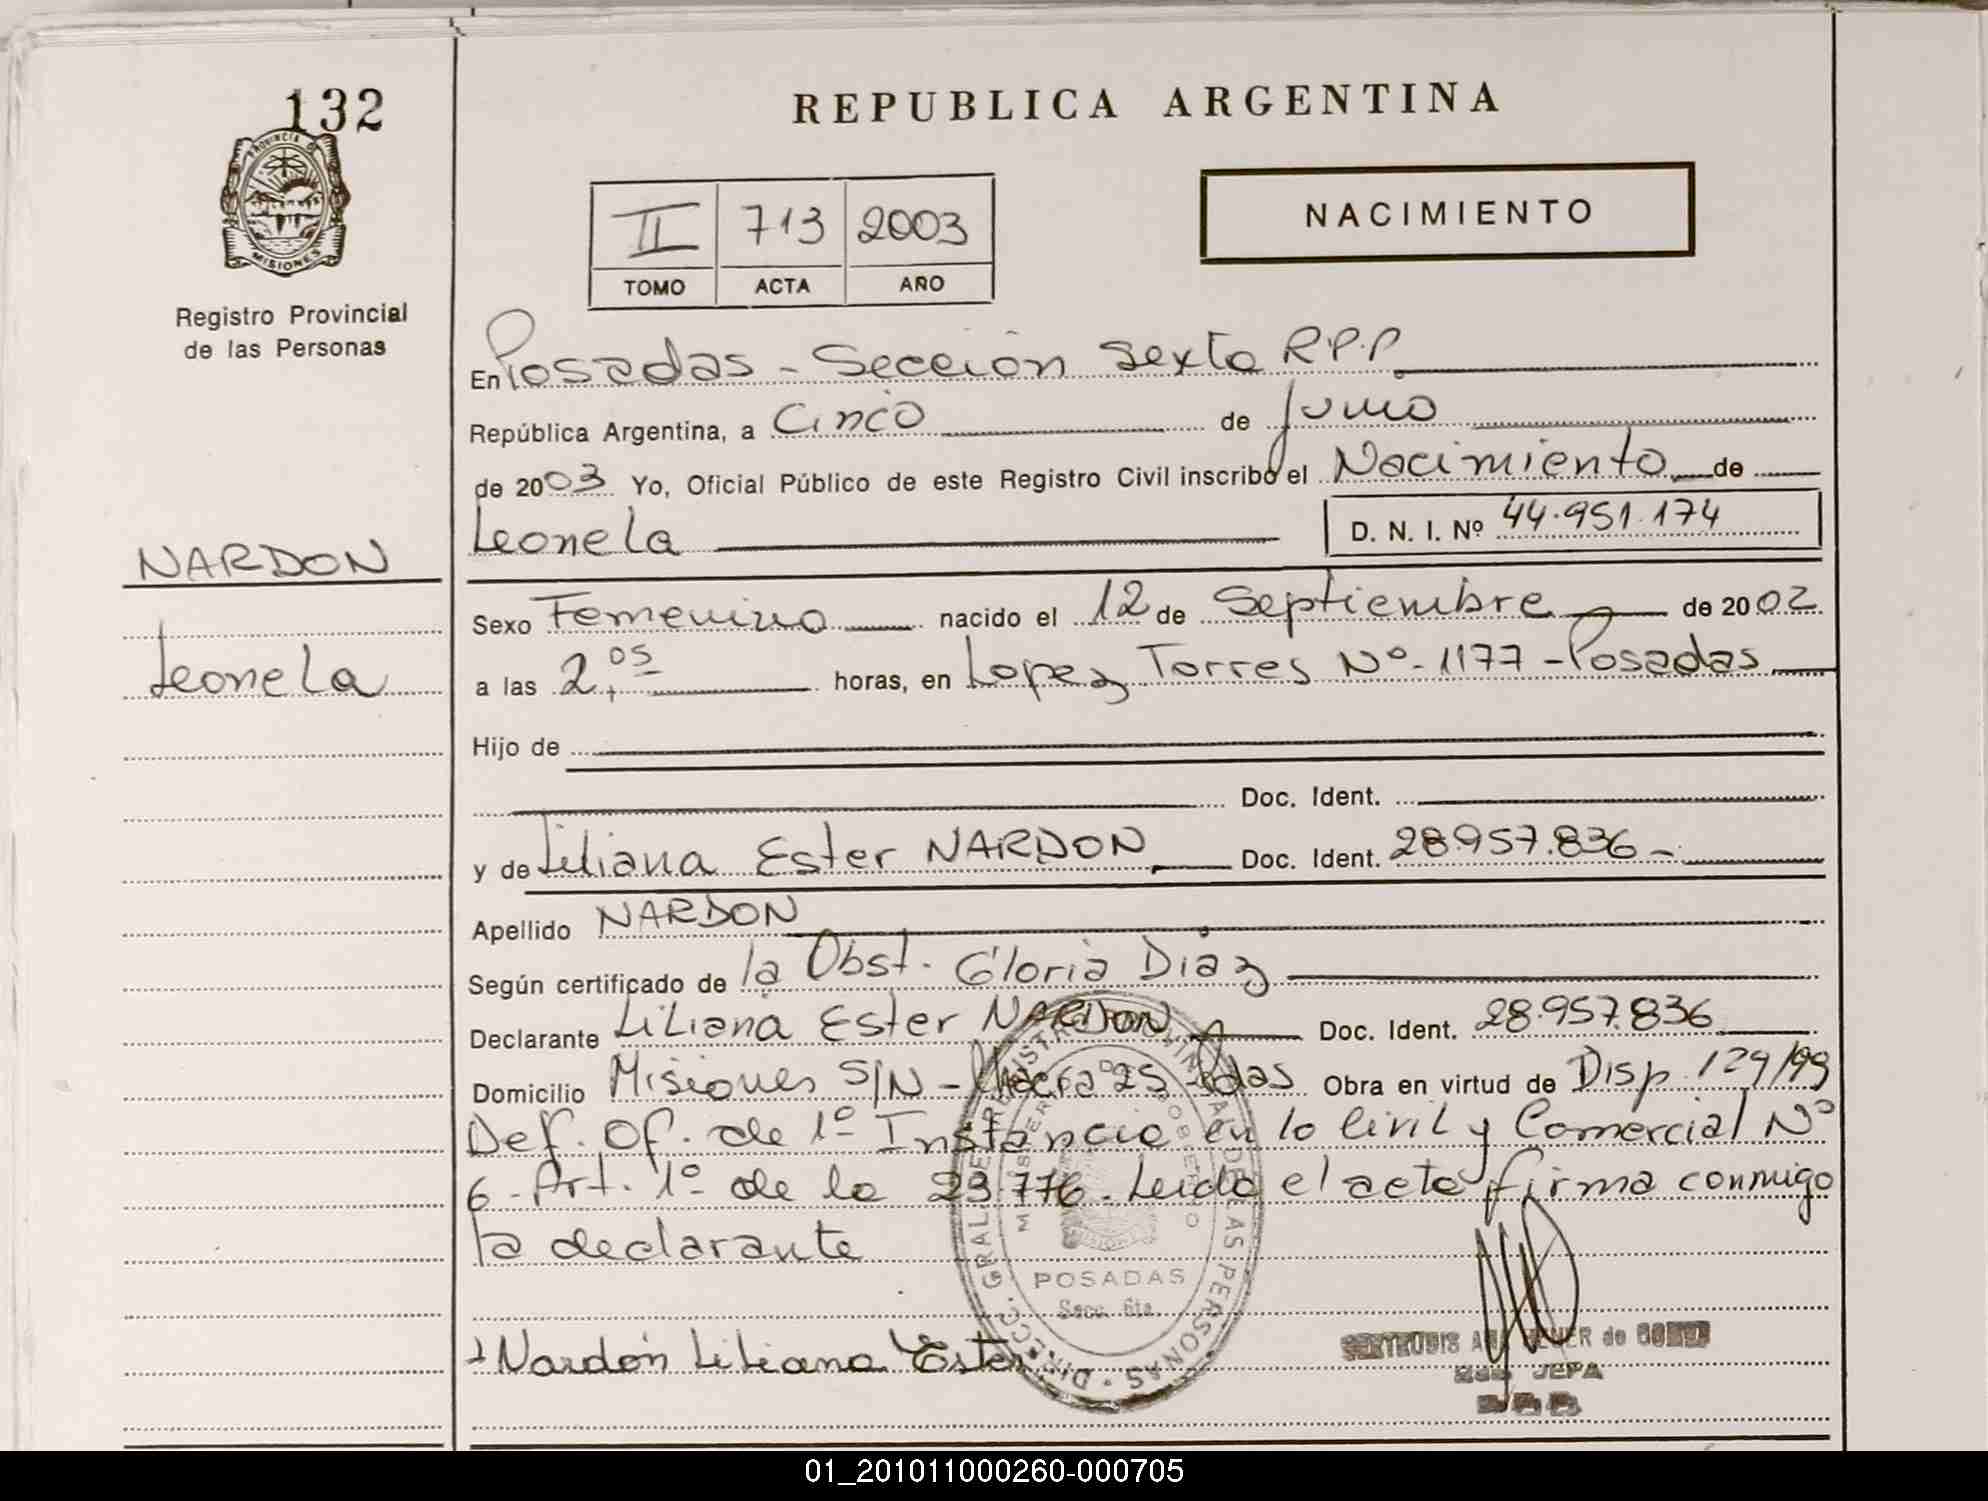 132
PROVINCIA DE
MISIONES
Registro Provincial
de las Personas
NARDON
Leonela
REPUBLICA ARGENTINA
NACIMIENTO
II 713 2003
TOMO ACTA AÑO
En Posadas - Sección Sexta R.P.P
República Argentina, a Cinco de Junio
de 2003 Yo, Oficial Público de este Registro Civil inscribo el Nacimiento de
Leonela D. N. I. Nº 44.951.174
Sexo Femenino nacido el 12 de Septiembre de 2002
a las 2,05 horas, en Lopez Torres Nº- 1177 - Posadas
Hijo de
Doc. Ident.
y de Liliana Ester NARDON Doc. Ident. 28957.836 -
Apellido NARDON
Según certificado de la Obst. Gloria Diaz
Declarante Liliana Ester NARDON Doc. Ident. 28.957.836
Domicilio Misiones S/N - Chacra 25 - Pdas Obra en virtud de Disp. 129/99
Def. Of. de 1º Instancia en lo Civil y Comercial Nº
6 - Art. 1º de la 23.776. Leida el acta firma conmigo
la declarante
POSADAS
Secc. 6ta
DIRECC. GRAL. DE REGISTRO PROVINCIAL DE LAS PERSONAS
Nardón Liliana Ester
JEFA
01_201011000260-000705